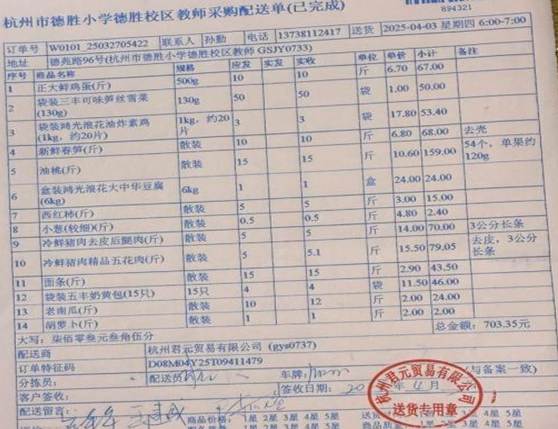 杭州市德胜小学德胜校区教师采购配送单(已完成)
894321
订单号 W0101_25032705422 联系人 孙勤 电话 13738112417 送货 2025-04-03 星期四 6:00-7:00
地址 德苑路96号(杭州市德胜小学德胜校区教师 GSJY0733)
序号 商品名称 规格 应发 实发 实收 单位 单价 小计 备注
1 正大鲜鸡蛋(斤) 500g 10 10 10 斤 6.70 67.00
2 袋装三丰可味笋丝雪菜(130g) 130g 50 50 50 袋 1.00 50.00
3 袋装鸿光浪花油炸素鸡(1kg，约20片) 1kg，约20片 3 3 3 袋 17.80 53.40
4 新鲜春笋(斤) 散装 10 10 10 斤 6.80 68.00 去壳
5 油桃(斤) 散装 15 15 15 斤 10.60 159.00 54个，单果约120g
6 盒装鸿光浪花大中华豆腐(6kg) 6kg 1 1 1 盒 24.00 24.00
7 西红柿(斤) 散装 5 5 5 斤 3.00 15.00
8 小葱(较细)(斤) 散装 0.5 0.5 0.5 斤 4.80 2.40
9 冷鲜猪肉去皮后腿肉(斤) 散装 5 5 5 斤 14.00 70.00 3公分长条
10 冷鲜猪肉精品五花肉(斤) 散装 5 5 5.1 斤 15.50 79.05 去皮，3公分长条
11 面条(斤) 散装 15 15 15 斤 2.90 43.50
12 袋装五丰奶黄包(15只) 15只 4 4 4 袋 11.50 46.00
13 老南瓜(斤) 散装 10 10 12 斤 2.00 24.00
14 胡萝卜(斤) 散装 1 1 1 斤 2.00 2.00
大写：柒佰零叁元叁角伍分 总金额：703.35元
配送商 杭州君元贸易有限公司 (gys0737)
订单特征码 D08M04Y25T09411479
分拣员： 配送员 车牌： 与备案一致)
客户签收： 签收日期：20 年 4月
配送留言：
商品价格：1星 2星 3星 4星 5星
杭州君元贸易有限公司
送货专用章